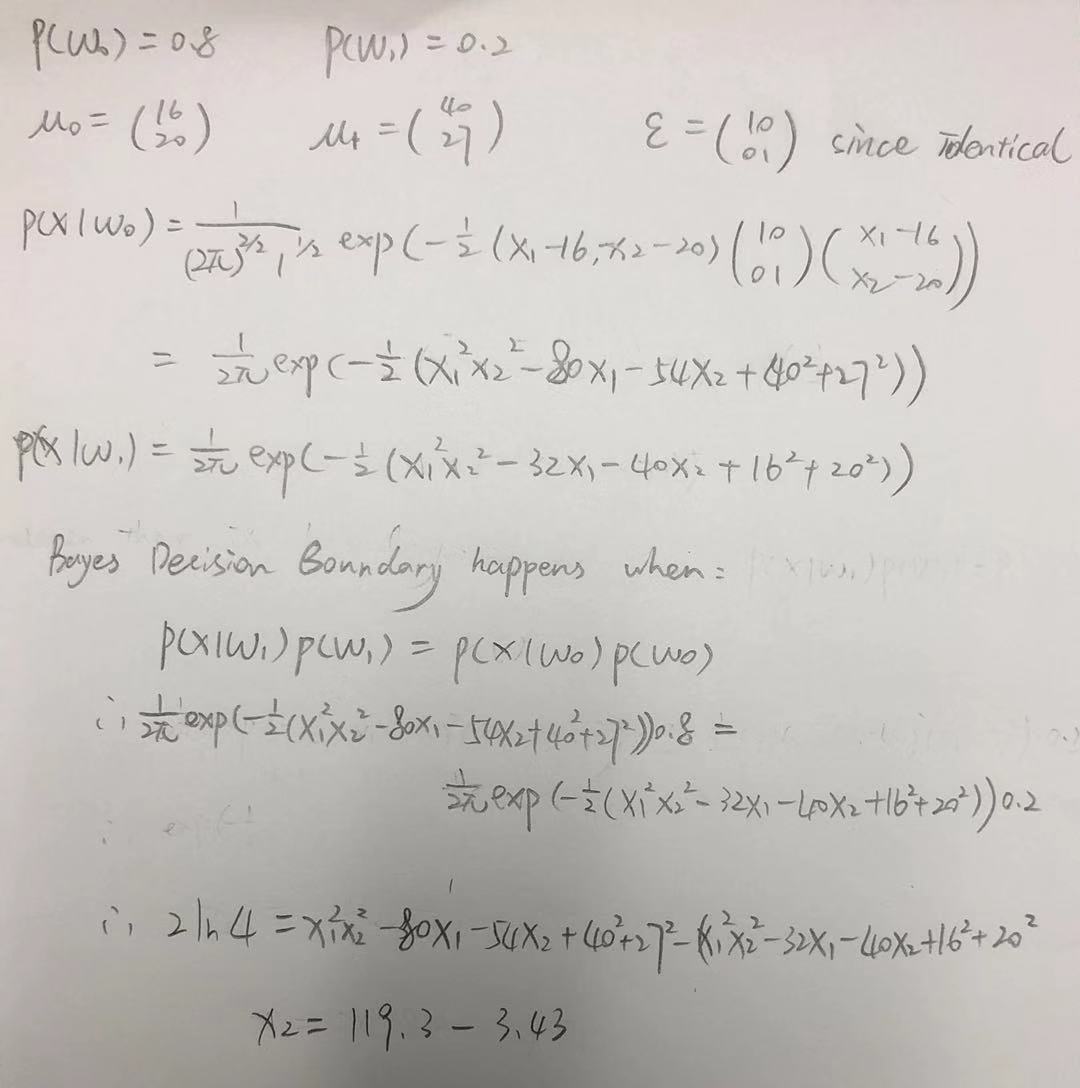 P(W₀) = 0.8 P(W₁) = 0.2
μ₀ = (16 20) μ₁ = (40 27) Σ = (10 01) since identical
p(x|w₀) = 1/((2π)^(2/2) 1^(1/2)) exp(-1/2 (x₁-16, x₂-20) (10 01) (x₁-16 x₂-20))
= 1/2π exp(-1/2 (x₁²x₂² - 80x₁ - 54x₂ + 40² + 27²))
p(x|w₁) = 1/2π exp(-1/2 (x₁²x₂² - 32x₁ - 40x₂ + 16² + 20²))
Bayes Decision Boundary happens when:
p(x|w₁) p(w₁) = p(x|w₀) p(w₀)
∴ 1/2π exp(-1/2 (x₁²x₂² - 80x₁ - 54x₂ + 40² + 27²)) 0.8 =
1/2π exp(-1/2 (x₁²x₂² - 32x₁ - 40x₂ + 16² + 20²)) 0.2
∴ 2 ln 4 = x₁²x₂² - 80x₁ - 54x₂ + 40² + 27² - (x₁²x₂² - 32x₁ - 40x₂ + 16² + 20²
x₂ = 119.3 - 3.43